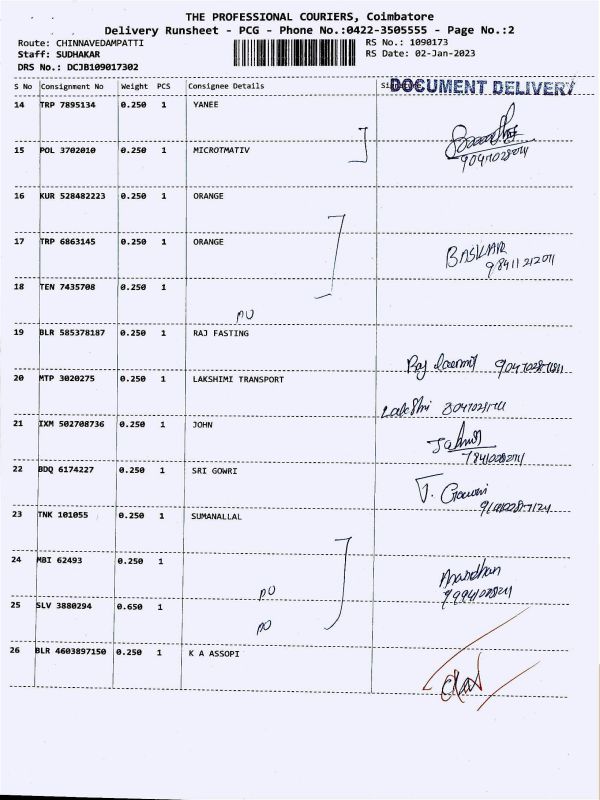 THE PROFESSIONAL COURIERS, Coimbatore
Delivery Runsheet - PCG - Phone No.:0422-3505555 - Page No.:2
Route: CHINNAVEDAMPATTI
RS No.: 1090173
Staff: SUDHAKAR
RS Date: 02-Jan-2023
DRS No.: DCJB109017302
DOCUMENT DELIVERY
S No Consignment No Weight PCS Consignee Details
14 TRP 7895134 0.250 1 YANEE
15 POL 3702010 0.250 1 MICROTMATIV
16 KUR 528482223 0.250 1 ORANGE
17 TRP 6863145 0.250 1 ORANGE
BASKAR
18 TEN 7435708 0.250 1
19 BLR 585378187 0.250 1 RAJ FASTING
Raj
20 MTP 3020275 0.250 1 LAKSHIMI TRANSPORT
21 IXM 502708736 0.250 1 JOHN
22 BDQ 6174227 0.250 1 SRI GOWRI
J. Gowri
23 TNK 101055 0.250 1 SUMANALLAL
24 MBI 62493 0.250 1
Anandhan
25 SLV 3880294 0.650 1
26 BLR 4603897150 0.250 1 K A ASSOPI